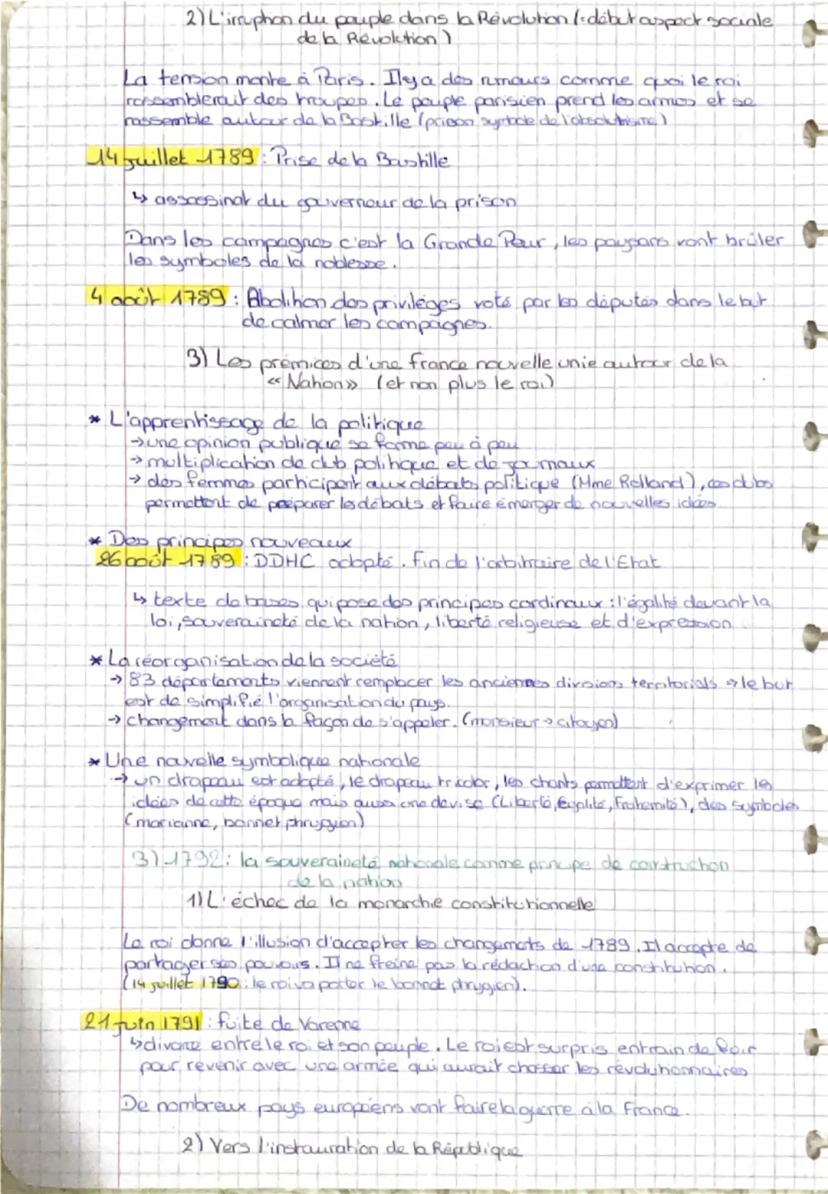 2) L'irruption du peuple dans la Révolution (=début aspect sociale
de la Révolution)
La tension monte à Paris. Il y a des rumeurs comme quoi le roi
rassemblerait des troupes. Le peuple parisien prend les armes et se
rassemble autour de la Bastille (prison symbole de l'absolutisme)
14 juillet 1789 : Prise de la Bastille
↳ assassinat du gouverneur de la prison
Dans les campagnes c'est la Grande Peur, les paysans vont brûler
les symboles de la noblesse.
4 août 1789 : Abolition des privilèges voté par les députés dans le but
de calmer les campagnes.
3) Les prémices d'une France nouvelle unie autour de la
« Nation » (et non plus le roi)
* L'apprentissage de la politique
→ une opinion publique se forme peu à peu
→ multiplication de club politique et de journaux
→ des femmes participent aux débats politique (Mme Rolland), ces clubs
permettent de préparer les débats et faire émerger de nouvelles idées
* Des principes nouveaux
26 août 1789 : DDHC adopté. fin de l'arbitraire de l'Etat
↳ texte de bases qui pose des principes cardinaux : l'égalité devant la
loi, souveraineté de la nation, liberté religieuse et d'expression
* La réorganisation de la société
→ 83 départements viennent remplacer les anciennes division territorials → le but
est de simplifié l'organisation du pays.
→ changement dans la façon de s'appeler. (monsieur → citoyen)
* Une nouvelle symbolique nationale
→ un drapeau est adopté, le drapeau tricolor, les chants permettent d'exprimer les
idées de cette époque mais aussi une devise (Liberté, Egalité, Fraternité), des symboles
(marianne, bonnet phrygien)
3) 1792 : la souveraineté nationale comme principe de construction
de la nation
1) L'échec de la monarchie constitutionnelle
Le roi donne l'illusion d'accepter les changements de 1789. Il accepte de
partager ses pouvoirs. Il ne freine pas la rédaction d'une constitution.
(14 juillet 1790 : le roi va porter le bonnet phrygien).
21 juin 1791 : fuite de Varenne
↳ divorce entre le roi et son peuple. Le roi est surpris entrain de fuir
pour revenir avec une armée qui aurait chasser les révolutionnaires
De nombreux pays européens vont faire la guerre à la France.
2) Vers l'instauration de la République